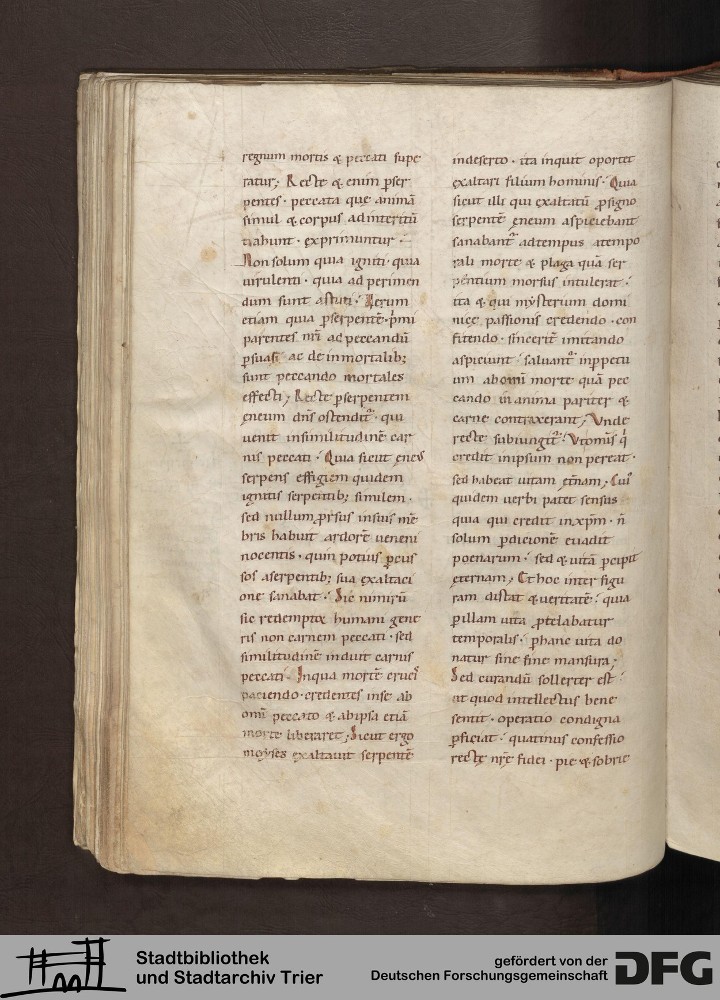 regnum mortis & peccati supe
ratur; Recte & enim p̱ser
pentes · peccata que animā
simul & corpus adinteritū
trahunt · exprimuntur ·
Non solum quia igniti · quia
uirulenti · quia ad perimen
dum sunt astuti · Uerum
etiam quia p̱serpentē · p̍mi
parentes nr̄i ad peccandū
p̱suasi · ac de inmortalib;
sunt peccando mortales
effecti; Recte p̱serpentem
ęneum dn̄s ostenditᷣ · qui
uenit insimilitudinē car
nis peccati · Quia sicut ęneꝰ
serpens effigiem quidem
ignitis serpentib; similem ·
sed nullum p̱rsus insuis mē
bris habuit ardorē ueneni
nocentis · quin potius p̱cus
sos aserpentib; sua exaltaci
one sanabat · Sic nimirū
sic redemptor humani gene
ris non carnem peccati · sed
similitudinē induit carnis
peccati · Inqua mortē crucis
paciendo · credentes inse ab
omi peccato & abipsa etiā
morte liberaret; Sicut ergo
moyses exaltauit serpentē
indeserto · ita inquit oportet
exaltari filium hominis · Quia
sicut illi qui exaltatū p̱signo
serpentē ęneum aspiciebant
sanabantᷣ adtempus atempo
rali morte & plaga quā ser
pentium morsus intulerat ·
ita & qui mysterium domi
nicę passionis credendo · con
fitendo · sinceritˉ imitando
aspiciunt · saluantᷣ inp̱petu
um abomi morte quā pec
cando in anima pariter &
carne contraxerant; Unde
recte subiungitᷣ · Utomīs q̍
credit inipsum non pereat ·
sed habeat uitam ęt̄nam; Cuiꝰ
quidem uerbi patet sensus
quia qui credit inxp̄m · n̄
solum p̱dicionē euadit
poenarum · sed & uitā p̱cipit
ęternam; Et hoc inter figu
ram distat & ueritatē · quia
p̱illam uita p̱telabatur
temporalis · p̱hanc uita do
natur sine fine mansura;
Sed curandū sollerter est ·
ut quod intellectus bene
sentit · operatio condigna
p̱ficiat · quatinus confessio
rectę nr̄e fidei · pie & sobrie
Stadtbibliothek
und Stadtarchiv Trier
gefördert von der
Deutschen Forschungsgemeinschaft
DFG